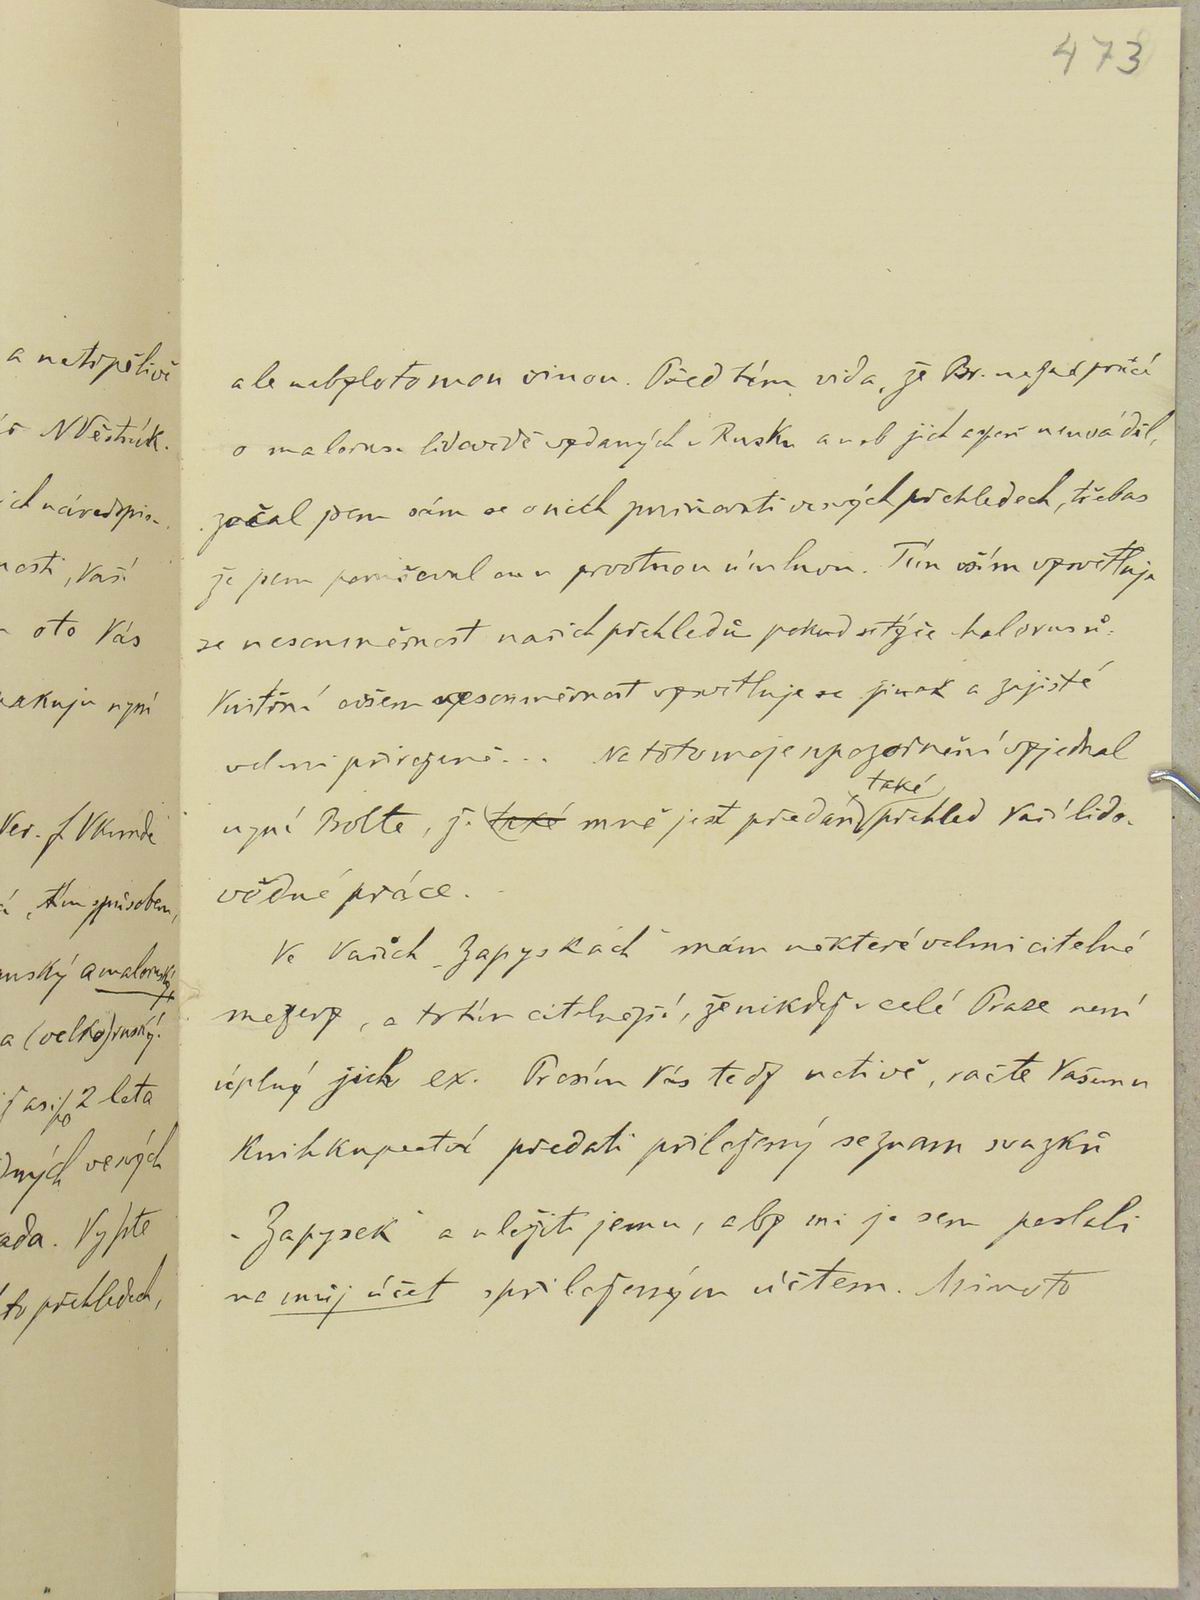 473
a netrpělivě
NVěstník.
ich národopis.
nosti, Vaší
oto Vás
nyní
Ver. f Vkunde
tím způsobem,
ruský a maloruský
a (velko)ruský.
asi po 2 leta
ných
ada. Vyjste
to přehledech,
ale nebylo to mou vinou. Před tím, vida, že Br. nejzad prací
o malorus. lidovědě vydaných v Rusku aneb jich neuváděl,
začal jsem sám se o nich zmiňovati ve svých přehledech, třebas
že jsem porušoval onu prvotnou úmluvu. Tím vším vysvětluje
se nesouměrnost našich přehledů pokud se týče Malorusů.
Vnitřní ovšem nesouměrnost vysvětluje se jinak a zajisté
velmi přirozeně... Na toto moje upozornění vyjednal
také
nyní Bolte, že také mně jest předán přehled Vaší lido-
vědné práce.
Ve Vašich „Zapyskách" mám některé velmi citelné
mezery, a tím citelnější, že nikdež v celé Praze není
úplný jich ex. Prosím Vás tedy uctivě, račte Vašemu
knihkupectví předati přiložený seznam svazků
„Zapysek" a uložiti jemu, aby mi je sem poslali
na můj účet s přiloženým účtem. Mimoto